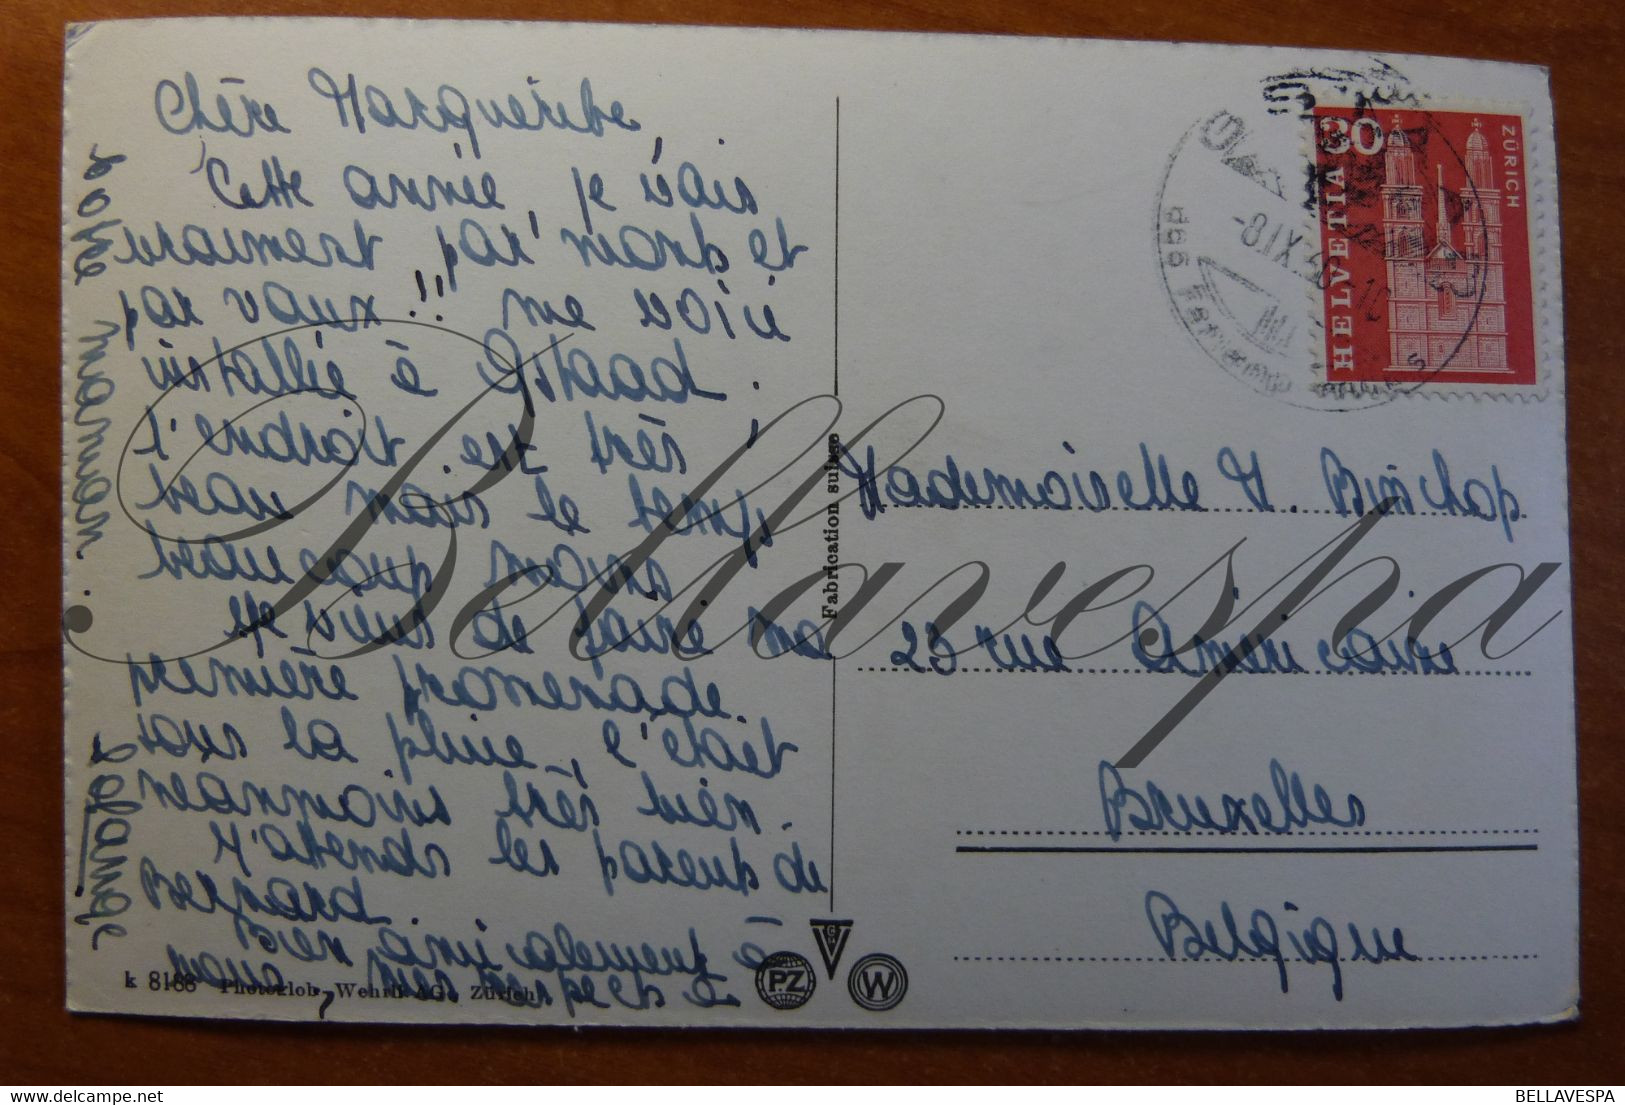 Chère Marguerite,
Cette année, je vais
vraiment par monts et
par vaux !! me voici
installée à Gstaad.
L'endroit est très
beau mais le temps
beaucoup moins
Je viens de faire ma
première promenade
sous la pluie, c'était
néanmoins très bien.
J'attends les parents de
Bernard.
Bien amicalement à
vous, mes respects à
votre maman.
Solange
k 8188 Photoglob-Wehrli AG., Zürich
PZ
W
Fabrication suisse
HELVETIA
30
ZÜRICH
GSTAAD
-8.IX.60-10
Mademoiselle M. Binchop
23 rue Américaine
Bruxelles
Belgique
Bellavespa
BELLAVESPA